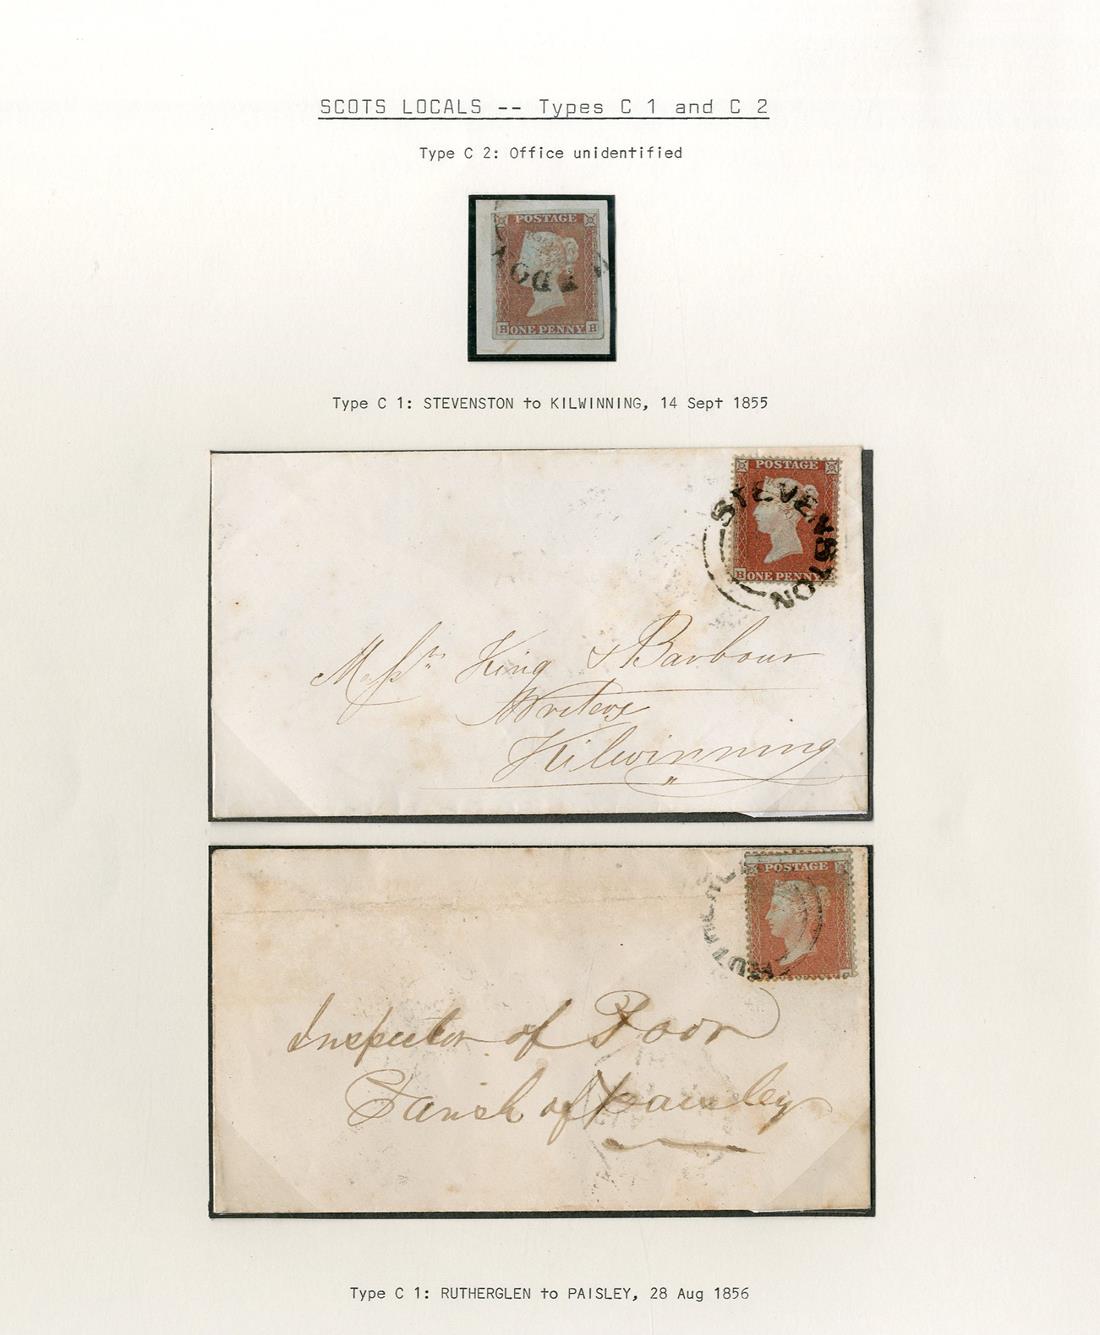 SCOTS LOCALS -- Types C 1 and C 2
Type C 2: Office unidentified
POSTAGE
H ONE PENNY H
Type C 1: STEVENSTON to KILWINNING, 14 Sept 1855
POSTAGE
STEVENSTON
ONE PENNY
Messrs King & Barbour
Writers
Kilwinning
POSTAGE
Inspector of Poor
Parish of Paisley
Type C 1: RUTHERGLEN to PAISLEY, 28 Aug 1856